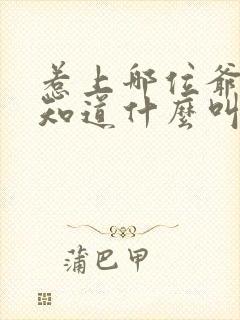 惹上邪位爷
知道什麼叫
蒲巴甲